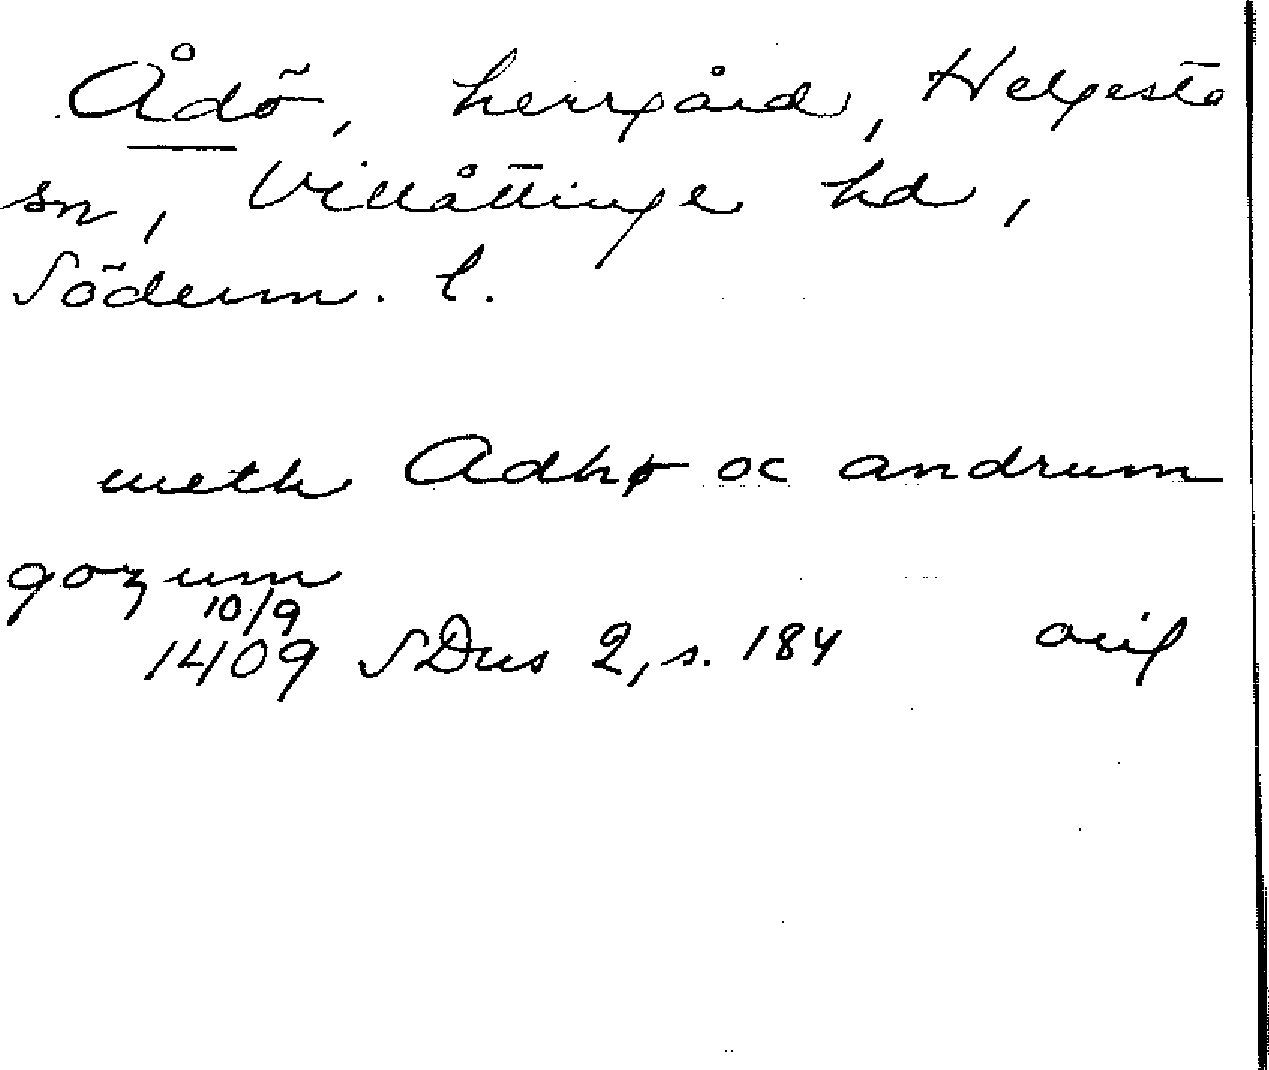 Ådö, herrgård, Helgesta
sn, Villåttinge hd,
Söderm. l.
meth Adhø oc andrum
gozum
10/9
1409 SDns 2, s. 184 orig